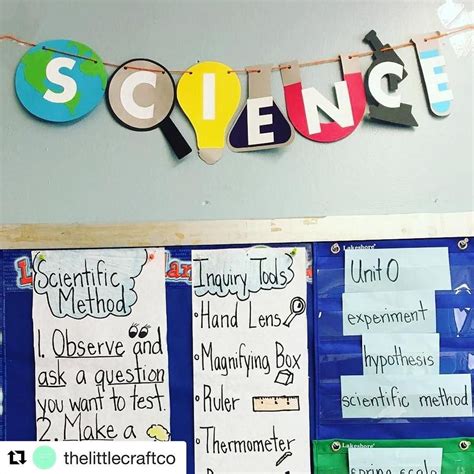 SCIENCE
Scientific
Method
1. Observe and
ask a question
you want to test.
2. Make a
Inquiry Tools
• Hand Lens
• Magnifying Box
• Ruler
• Thermometer
Lakeshore
Unit 0
experiment
hypothesis
scientific method
Lakeshore
spring scale
thelittlecraftco